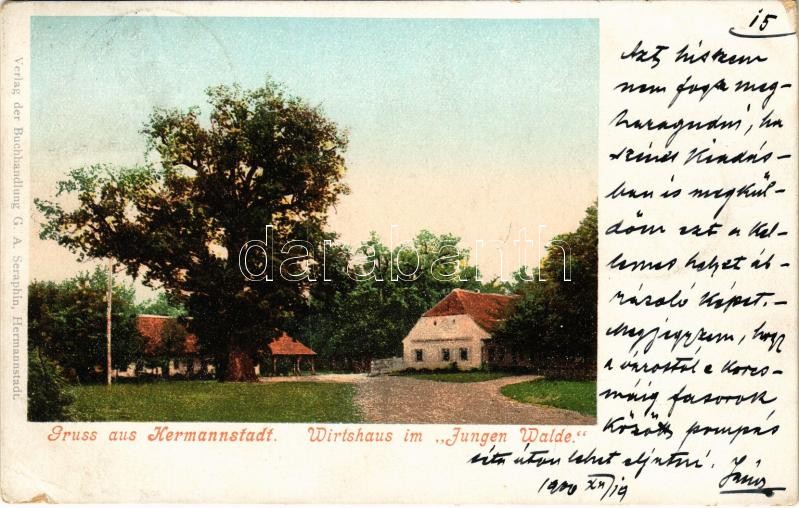 15
Azt hiszem
nem fogsz meg-
haragudni, ha
színes kiadás-
ban is megkül-
döm ezt a kel-
lemes helyet áb-
rázoló képet.-
Megjegyzem, hogy
a várostól e korcs-
máig fasorok
között pompás
séta úton lehet eljutni. János
1900 XII/19
Verlag der Buchhandlung G. A. Seraphin, Hermannstadt.
darabanth
Gruss aus Hermannstadt. Wirtshaus im „Jungen Walde."